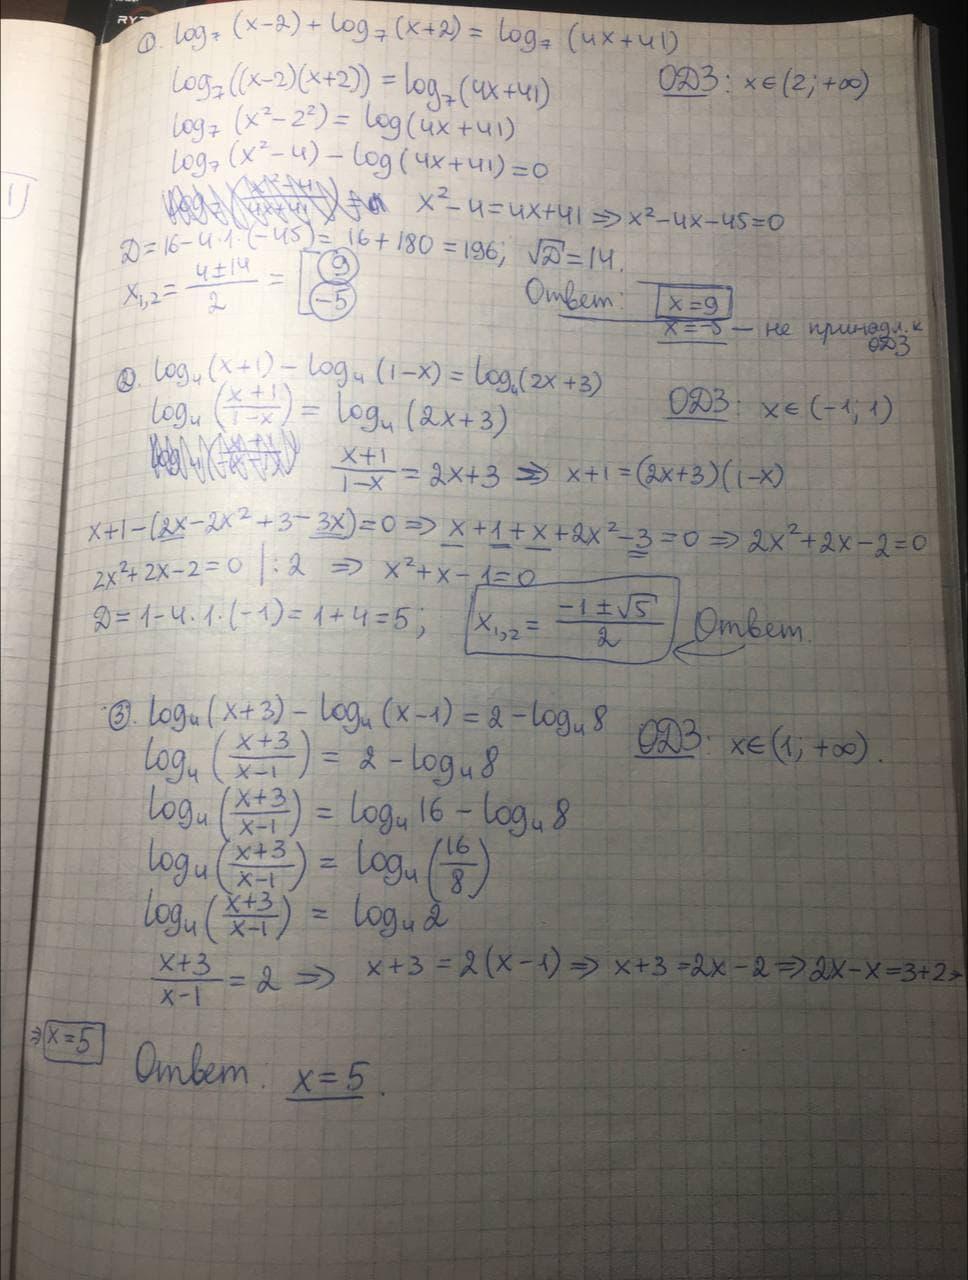 RYZ
1
①. log₇ (x-2) + log₇ (x+2) = log₇ (4x+41)
log₇((x-2)(x+2)) = log₇(4x+41) ОДЗ: x∈(2; +∞)
log₇ (x²-2²) = log(4x+41)
log₇ (x²-4) - log(4x+41) = 0
x²-4=4x+41 ⇒ x²-4x-45=0
D=16-4·1·(-45) = 16+180=196; √D=14.
x₁,₂ = (4±14)/2 = [9 -5 Ответ: x=9
x=-5 — не принадл. к ОДЗ
②. log₄(x+1) - log₄ (1-x) = log₄(2x+3)
log₄ ((x+1)/(1-x)) = log₄ (2x+3) ОДЗ: x∈(-1; 1)
(x+1)/(1-x) = 2x+3 ⇒ x+1=(2x+3)(1-x)
x+1-(2x-2x²+3-3x)=0 ⇒ x+1+x+2x²-3=0 ⇒ 2x²+2x-2=0
2x²+2x-2=0 |:2 ⇒ x²+x-1=0
D=1-4·1·(-1)=1+4=5; x₁,₂ = (-1±√5)/2 Ответ.
③. log₄(x+3) - log₄ (x-1) = 2-log₄8
log₄ ((x+3)/(x-1)) = 2-log₄8 ОДЗ: x∈(1; +∞).
log₄ ((x+3)/(x-1)) = log₄16 - log₄8
log₄ ((x+3)/(x-1)) = log₄ (16/8)
log₄ ((x+3)/(x-1)) = log₄2
(x+3)/(x-1) = 2 ⇒ x+3=2(x-1) ⇒ x+3=2x-2 ⇒ 2x-x=3+2 ⇒
⇒ x=5
Ответ: x=5.